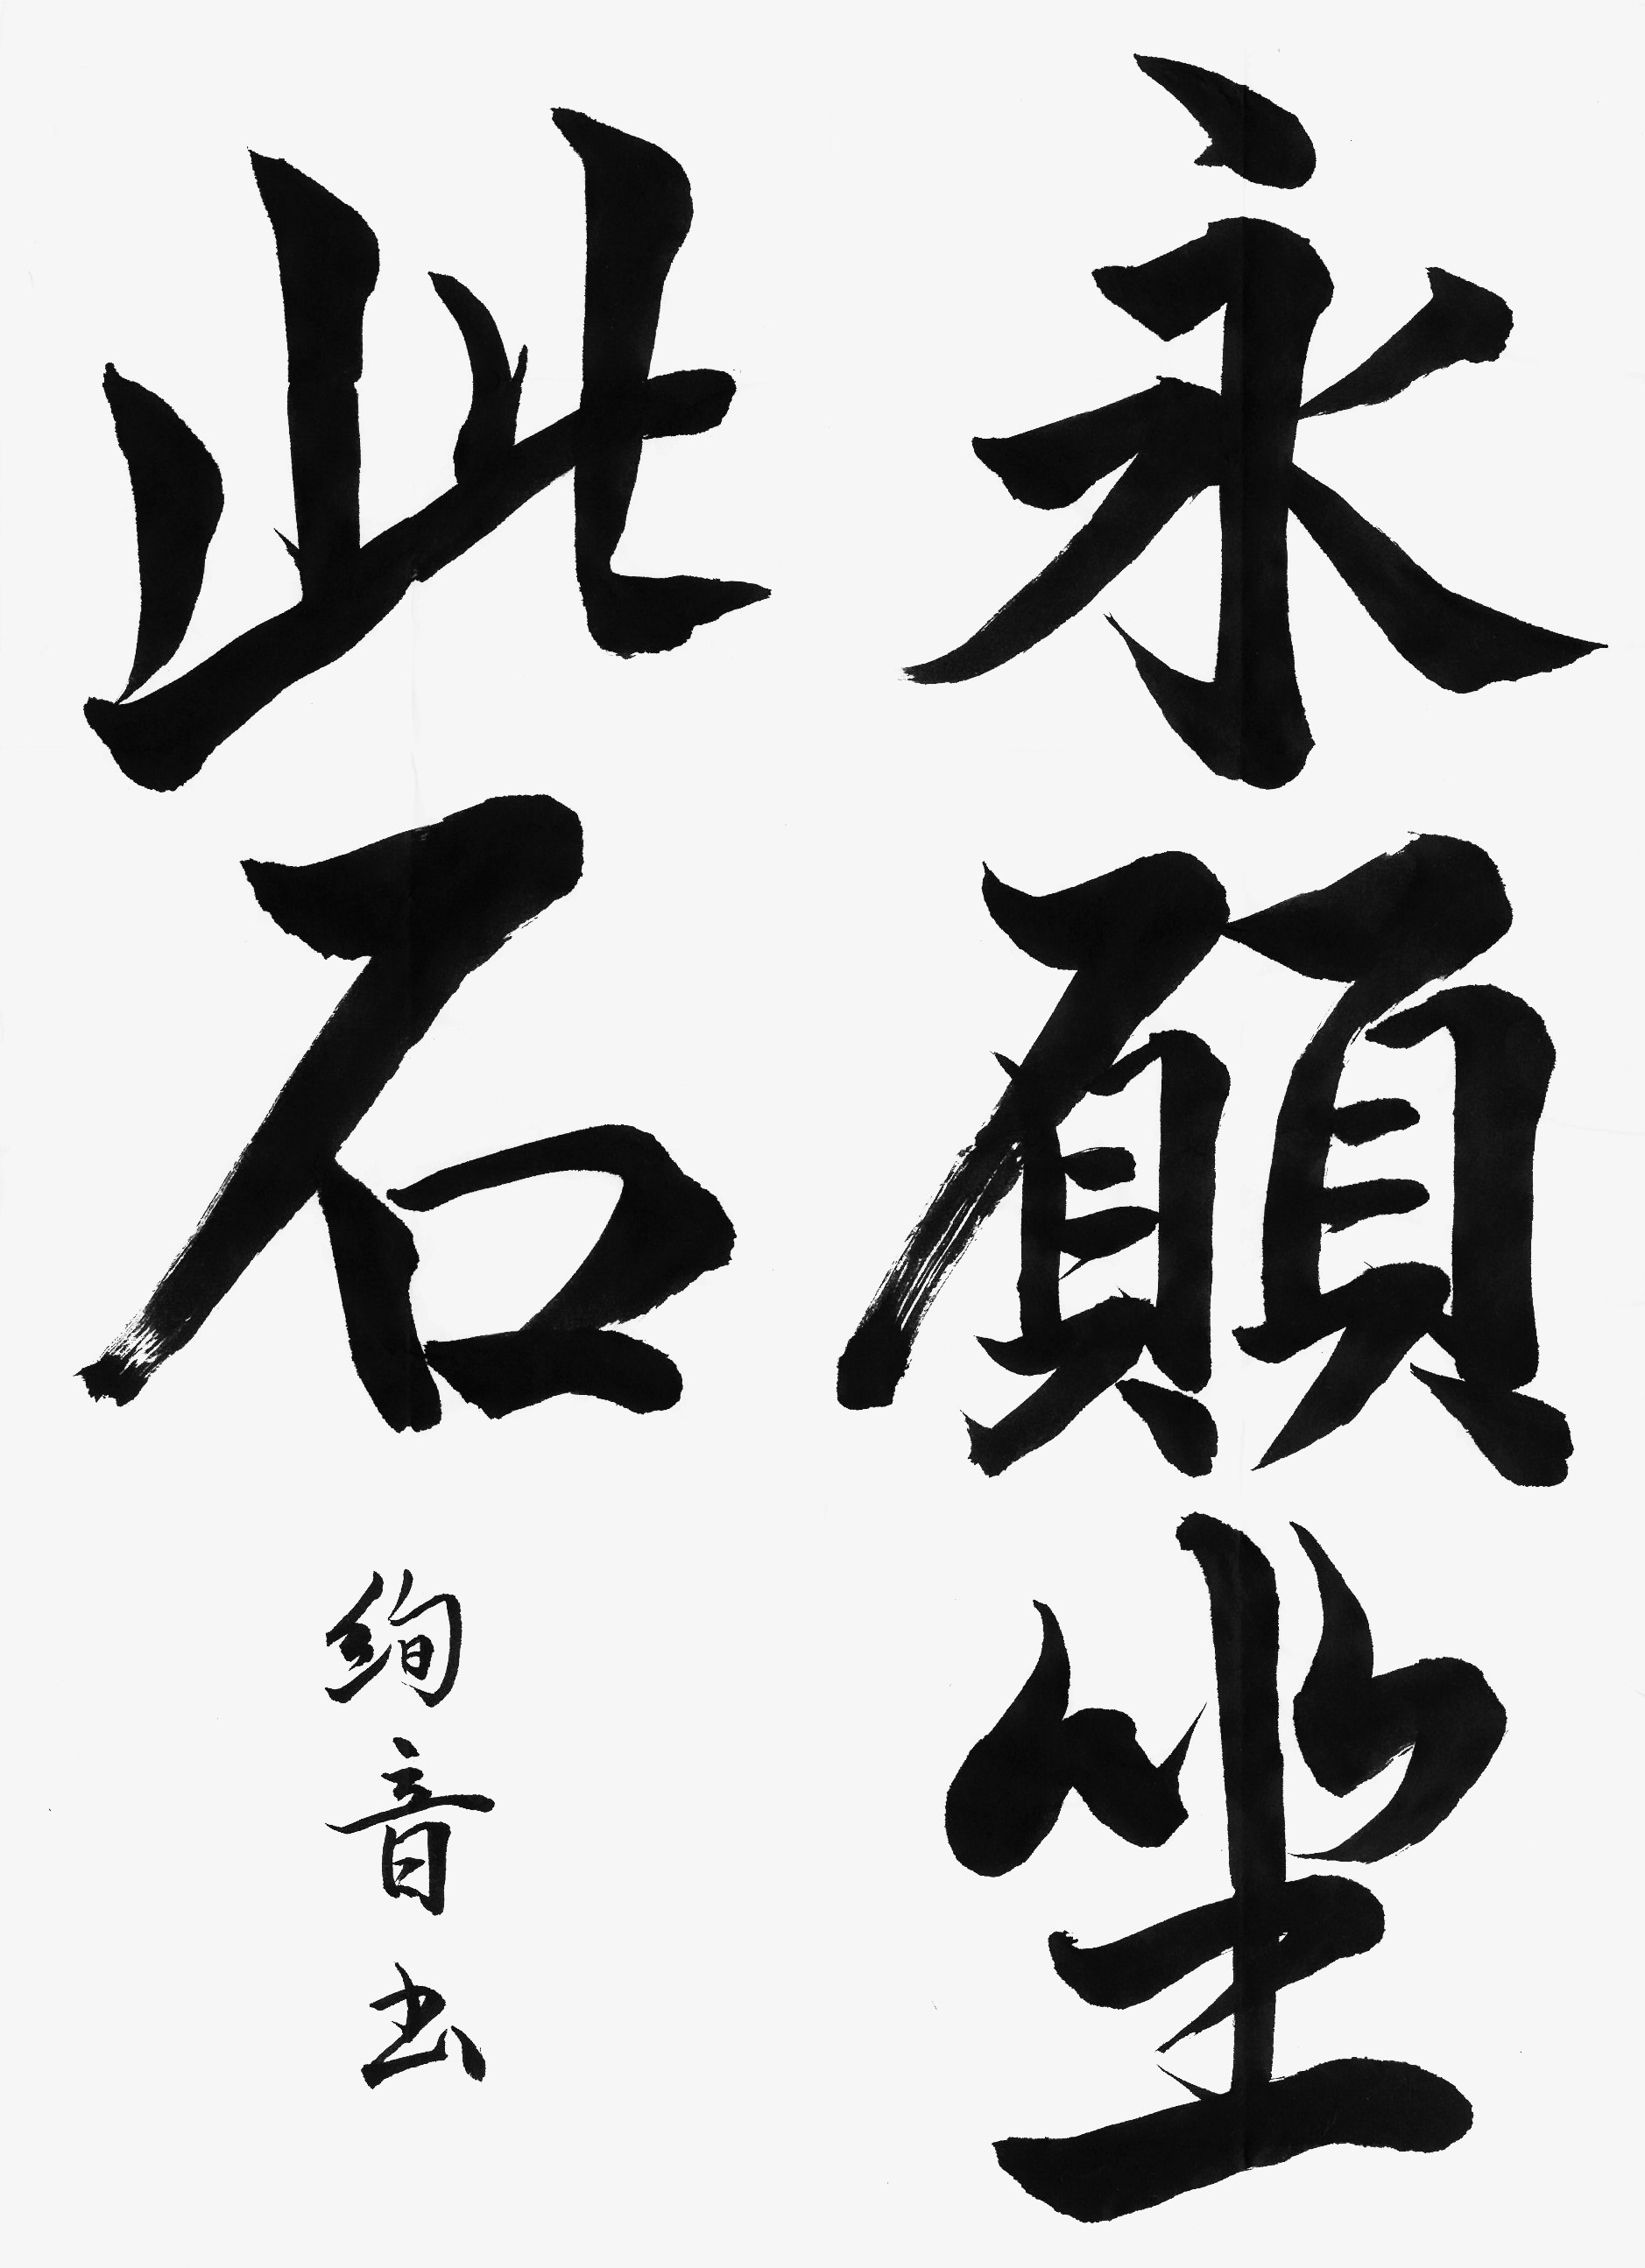 永願坐
此石
絢音書